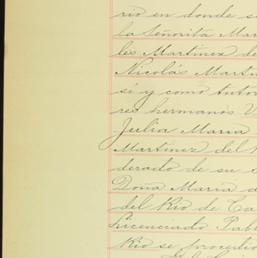 rio en donde se
la Señorita Mar
les Martinez de
Nicolás Martin
si y como tutor
res hermanos V
Julia Maria
Martinez del R
derado de su
Doña Maria d
del Rio de Ca
Licenciado Pabl
Rio se procedio